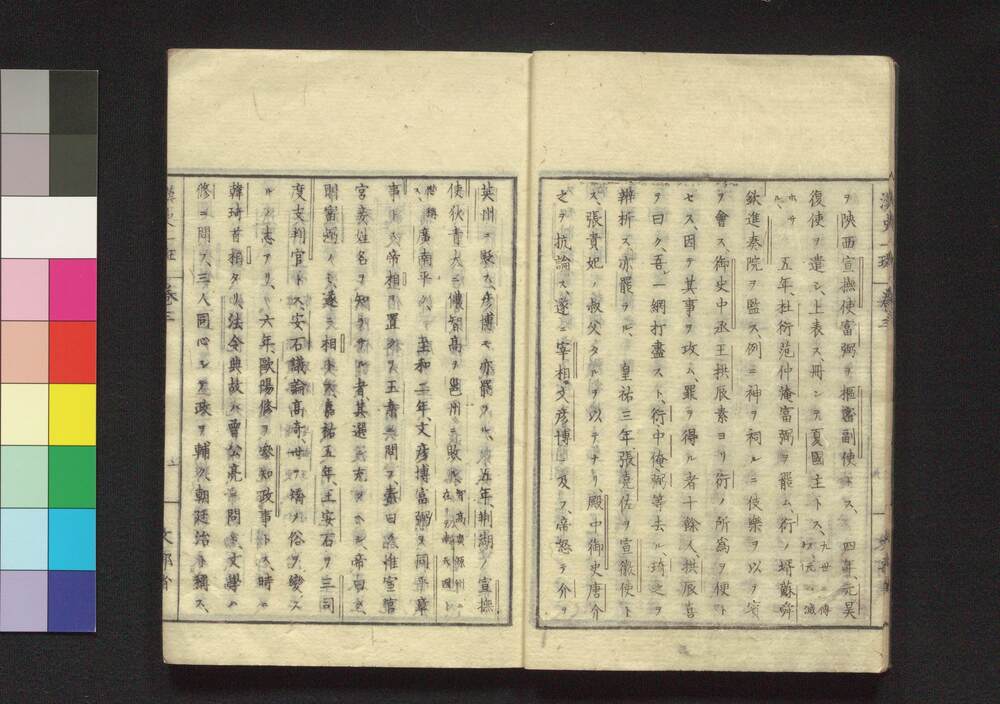 ヲ陝西宣撫使富弼ヲ樞密副使トス、四年、元昊
復使ヲ遣シ、上表ス、冊シテ夏國主トス、
五年、杜衍范仲淹富弼ヲ罷ム、衍ノ壻蘇舜
欽進奏院ヲ監ス、例ニ神ヲ祠ルニ伎樂ヲ以テ客
ヲ會ス御史中丞王拱辰素ヨリ衍ノ所爲ヲ便ト
セス、因テ其事ヲ攻ム、罪ヲ得ル者十餘人、拱辰喜
ヲ曰ク、吾一網打盡スト、衍仲淹弼等去ル、琦之ヲ
辨折ス、亦罷ラル、皇祐三年張堯佐ヲ宣徽使ト
ス、張貴妃ノ叔父タルヲ以テナリ、殿中御史唐介
之ヲ抗論ス、遂ニ宰相文彦博ニ及フ、帝怒テ介ヲ
英州ニ貶ス、彦博モ亦罷ラル、五年、荊湖ノ宣撫
使狄青大ニ儂智高ヲ邕州ニ敗ル、
廣南平ク、至和二年、文彦博富弼ヲ同平章
事トス、帝相ヲ置クヲ王素ニ問フ、素曰ク、惟宦官
宮妾姓名ヲ知ラサル者、其選ニ充ツヘシ、帝曰ク、
則富弼ノミ、遂ニ相トス、嘉祐五年、王安石ヲ三司
度支判官トス、安石議論高奇、世ヲ矯メ俗ヲ變ス
ルノ志アリ、六年、歐陽修ヲ參知政事トス、時ニ
韓琦首相タリ、法令典故ハ曾公亮ニ問ヒ、文學ハ
修ニ問フ、三人同心シテ政ヲ輔ク、朝廷治ト稱ス、